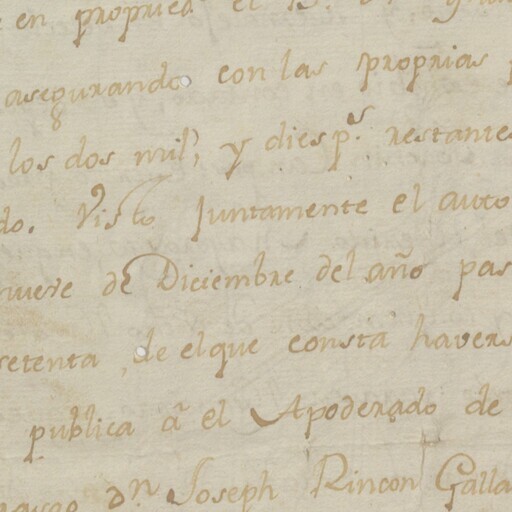 en propried.ª el
asegurando con las proprias
los dos mil, y dies p.s restantes
do. Visto Juntamente el auto
nueve de Diciembre del año pas
setenta, de el que consta havers
publica â el Apoderado de
dn Joseph Rincon Galla